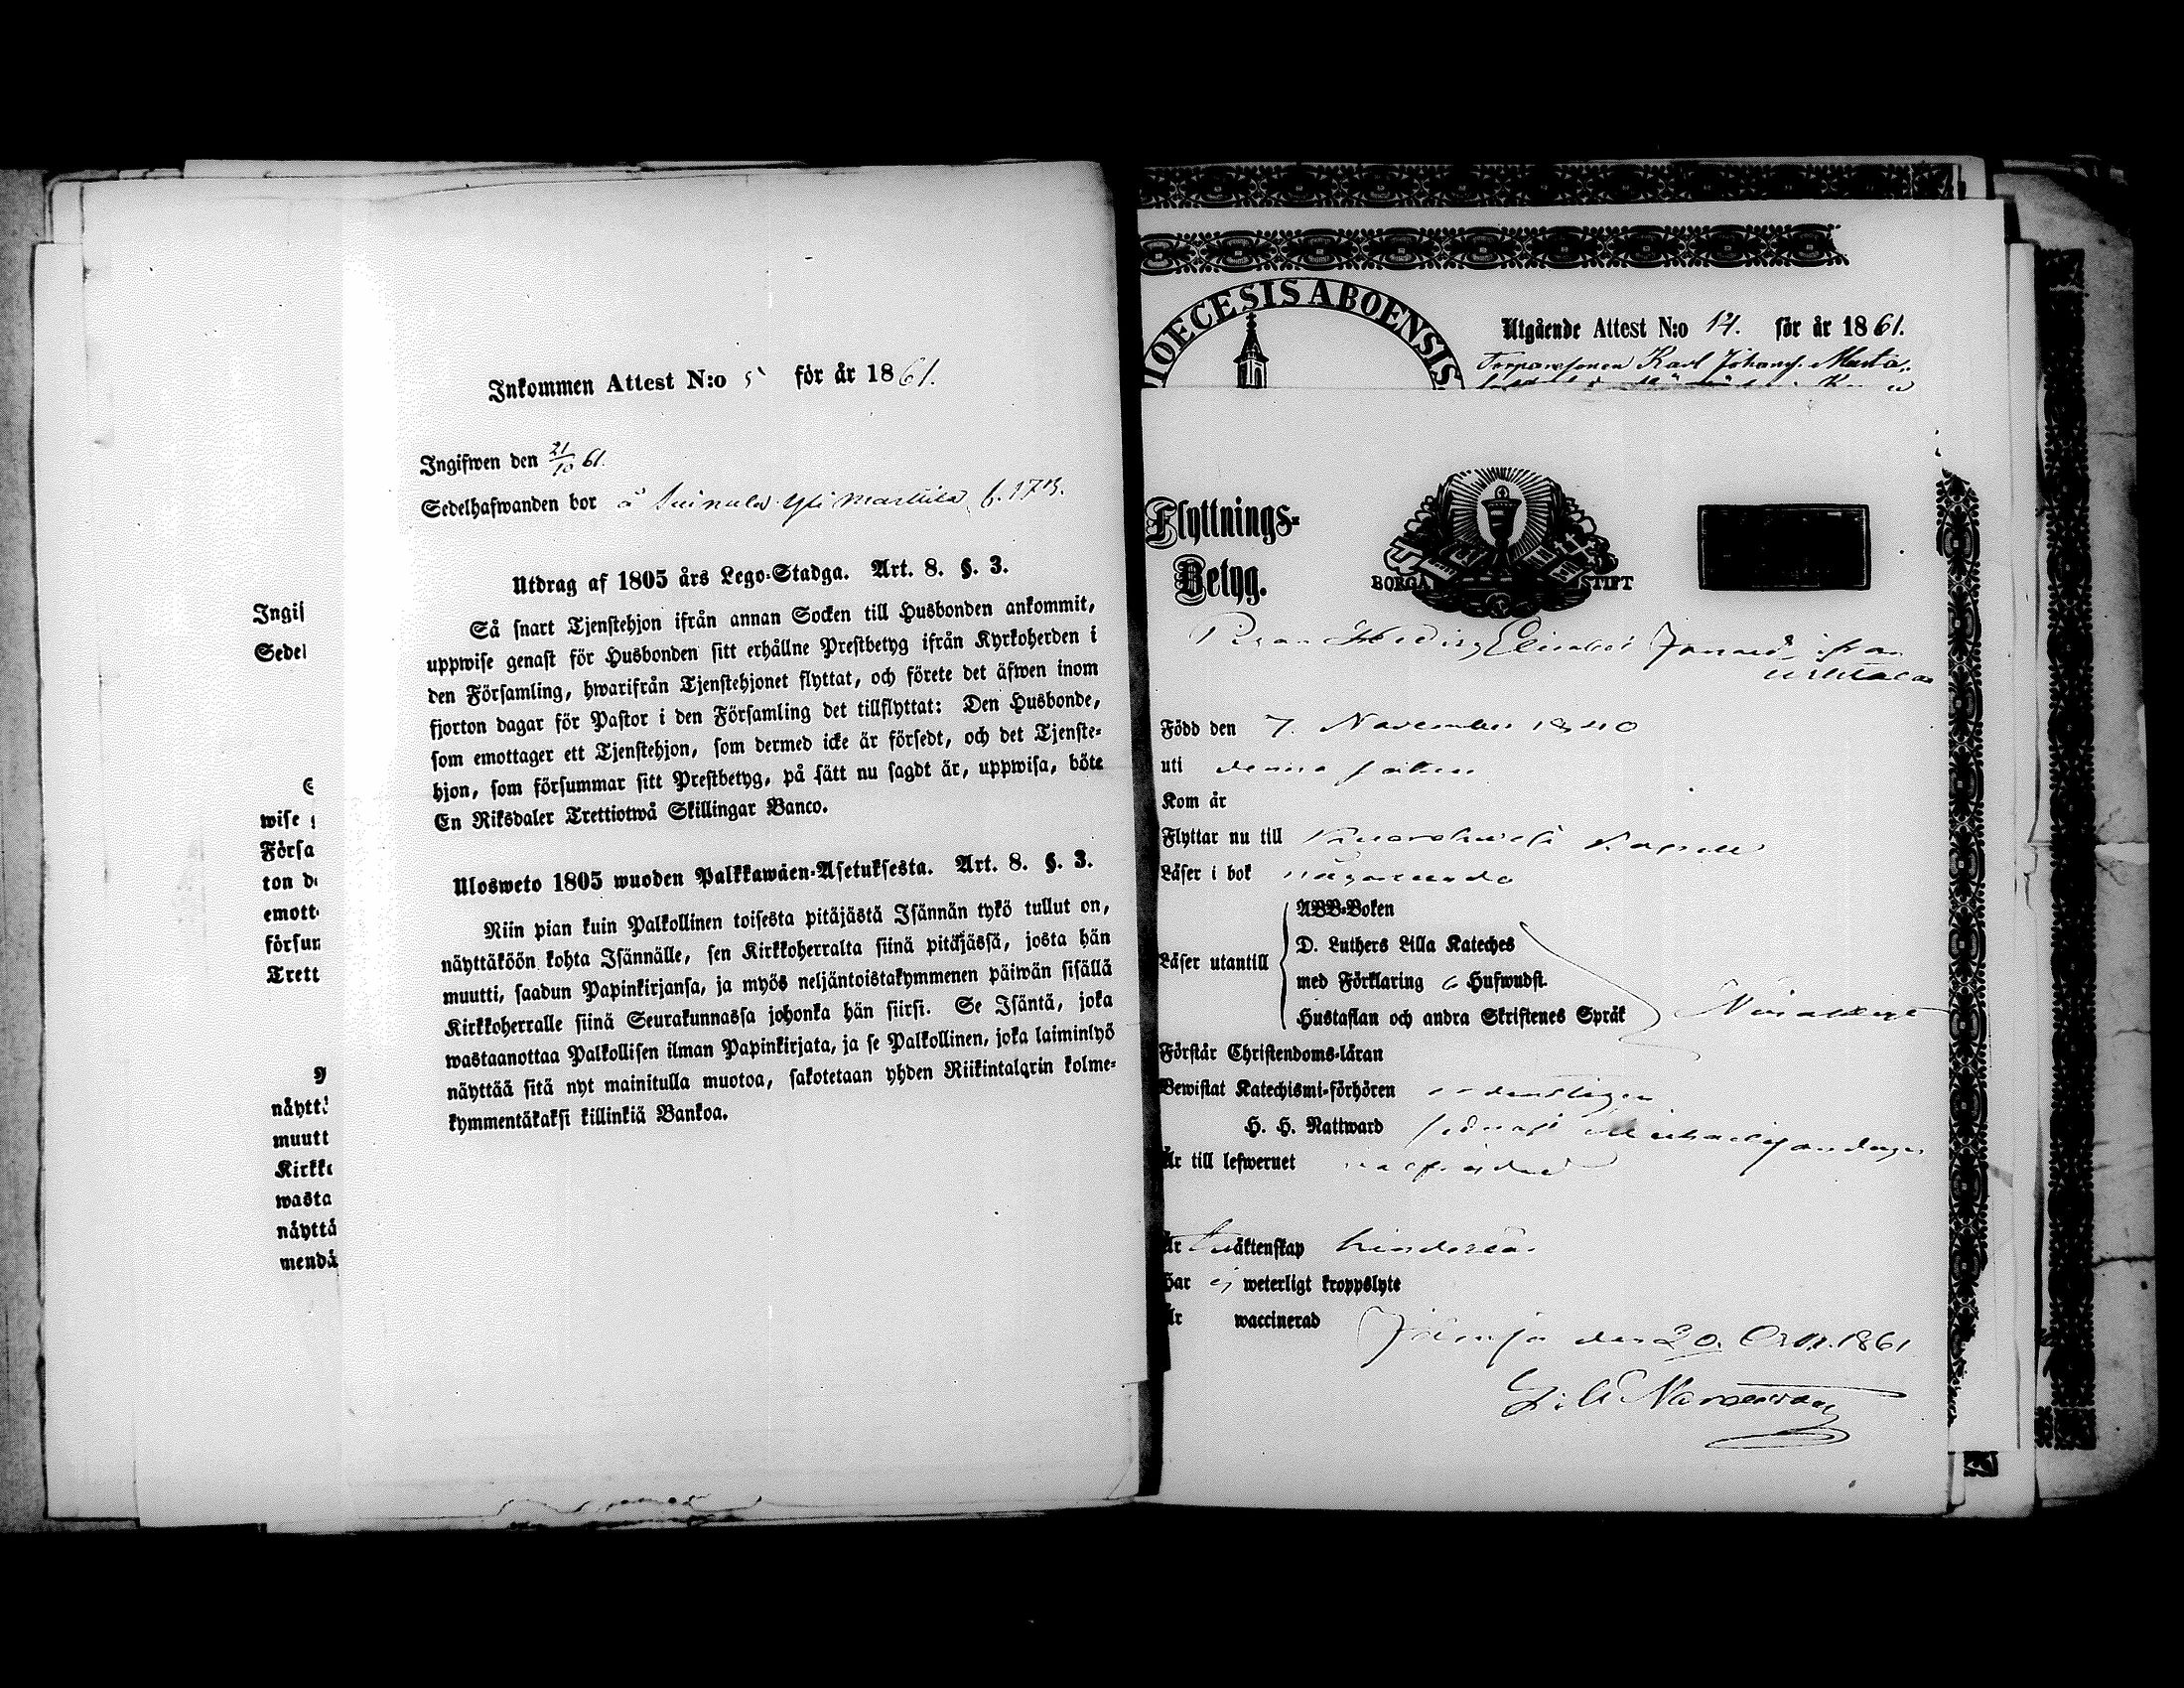 Inkommen Attest N:o 5 för år 1861.
Ingifwen den 21/10 61.
Sedelhafwanden bor å
Utdrag af 1805 års Lego-Stadga. Art. 8. §. 3.
Så snart Tjenstehjon ifrån annan Socken till Husbonden ankommit,
uppwise genast för Husbonden sitt erhållne Prestbetyg ifrån Kyrkoherden i
den Församling, hwarifrån Tjenstehjonet flyttat, och förete det äfwen inom
fjorton dagar för Pastor i den Församling det tillflyttat: Den Husbonde,
som emottager ett Tjenstehjon, som dermed icke är försedt, och det Tjenste-
hjon, som försummar sitt Prestbetyg, på sätt nu sagdt är, uppwisa, böte
En Riksdaler Trettiotwå Skillingar Banco.
Ulosweto 1805 wuoden Palkkawäen-Asetuksesta. Art. 8. §. 3.
Niin pian kuin Palkollinen toisesta pitäjästä Isännän tykö tullut on,
näyttäköön kohta Isännälle, sen Kirkkoherralta siinä pitäjässä, josta hän
muutti, saadun Papinkirjansa, ja myös neljäntoistakymmenen päiwän sisällä
Kirkkoherralle siinä Seurakunnassa johonka hän siirsi. Se Isäntä, joka
wastaanottaa Palkollisen ilman Papinkirjata, ja se Palkollinen, joka laiminlyö
näyttää sitä nyt mainitulla muotoa, sakotetaan yhden Riikintalarin kolme-
kymmentäkaksi killinkiä Bankoa.
Ingif
Sedel
wise
Försa
ton d
emott
försum
Trett
näytt
muutt
Kirkk
wasta
näyttä
mendä
DIOECESIS ABOENSIS
Utgående Attest N:o 14. för år 1861.
Torparesonen Karl Johans. Matts.
Flyttnings-
Betyg.
BORGÅ STIFT
Pigan Hedvig Elisabet ifrån
Född den 7. November 1840
uti denna socken
Kom år
Flyttar nu till Kapell
Läser i bok någorlunda
Läser utantill
ABB-Boken
D. Luthers Lilla Kateches
med Förklaring 6 Hufwudst.
Hustaflan och andra Skriftenes Språk
Förstår Christendoms-läran
Bewistat Katechismi-förhören ordentligen
H. H. Nattward sednast Michaelisöndagen
Är till lefwernet
Är till äktenskap hinderslös
Har ej weterligt kroppslyte
Är waccinerad
den 20. Octbr. 1861